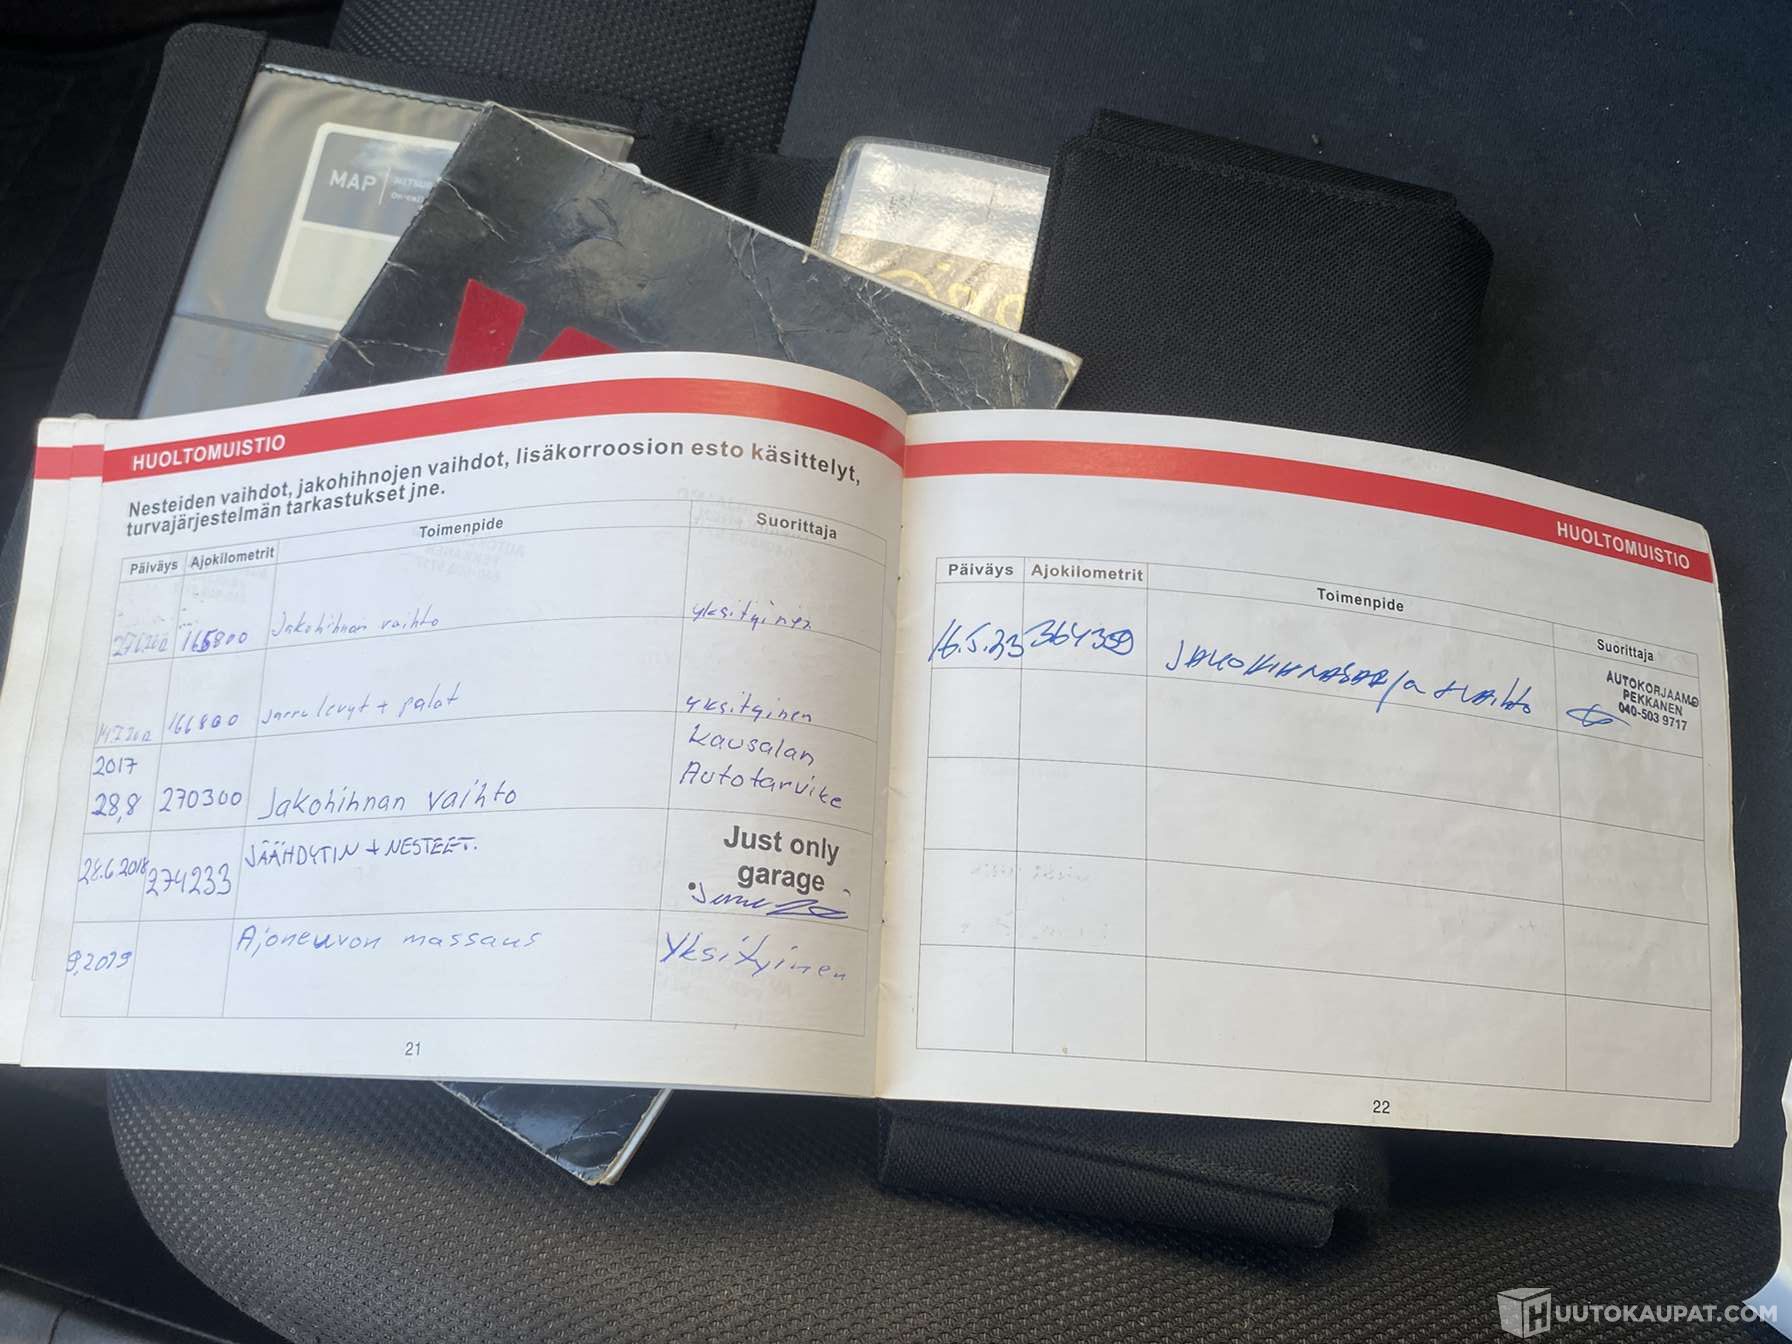 MAP
HUOLTOMUISTIO
Nesteiden vaihdot, jakohihnojen vaihdot, lisäkorroosion esto käsittelyt,
turvajärjestelmän tarkastukset jne.
Päiväys Ajokilometrit Toimenpide Suorittaja
165800 Jakohihnan vaihto yksityinen
166800 Jarrulevyt + palat yksityinen
2017 Kausalan
28,8 270300 Jakohihnan vaihto Autotarvike
28.6.2018 274233 JÄÄHDYTIN + NESTEET. Just only
garage
9,2019 Ajoneuvon massaus Yksityinen
21
HUOLTOMUISTIO
Päiväys Ajokilometrit Toimenpide Suorittaja
16.5.23 JAKOHIHNASARJA + VAIHTO AUTOKORJAAMO
PEKKANEN
040-503 9717
22
HUUTOKAUPAT.COM